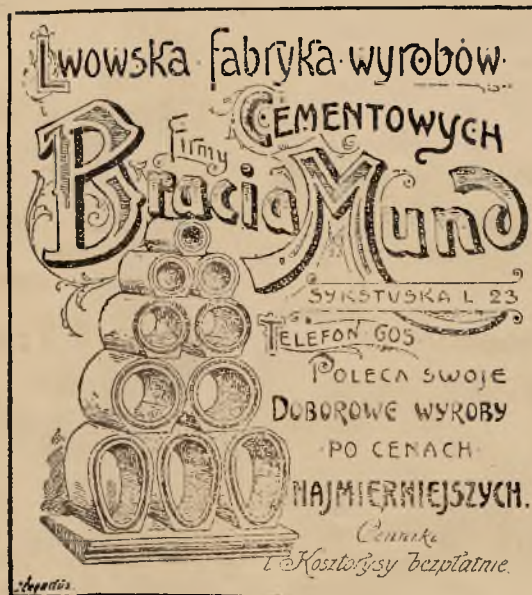 Lwowska fabryka wyrobów
Cementowych
Firmy
Bracia Mund
SYKSTUSKA L 23
TELEFON 605
POLECA SWOJE
DOBOROWE WYROBY
PO CENACH
NAJMIERNIEJSZYCH.
Cenniki
i Kosztorysy bezpłatnie.